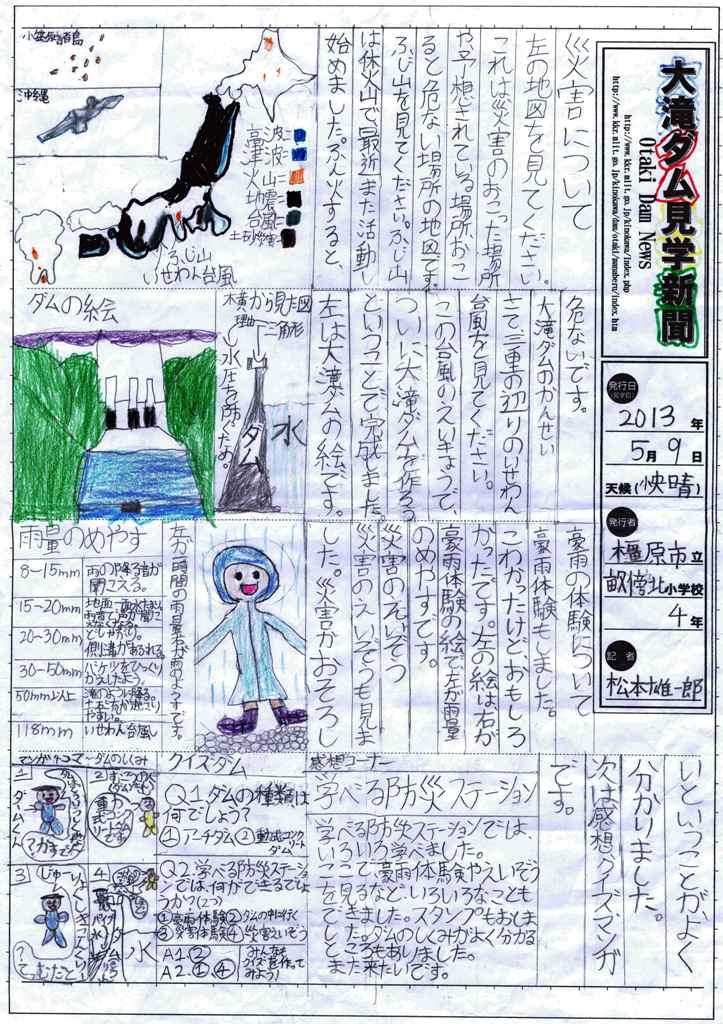 大滝ダム見学新聞
Otaki Dam News
http://www.kkr.mlit.go.jp/kinokawa/index.php
発行日
2013年
5月9日
天候(快晴)
発行者
橿原市立
畝傍北小学校
4年
記者
松本雄一郎
災害について
左の地図を見てください。
これは災害のおこった場所
や予想されている場所おこ
ると危ない場所の地図です。
ふじ山を見てください。ふじ山
は休火山で最近また活動し
始めました。ふん火すると、
小笠原諸島
沖縄
高波=
津波=
火山=
地震=
台風=
土砂災害=
ふじ山
いせわん台風
危ないです。
大滝ダムのかんせい
さて、三重の辺りのいせわん
台風を見てください。
この台風のえいきょうで、
ついに大滝ダムを作ろう
ということで完成しました。
左は大滝ダムの絵です。
横から見た図
理由
三角形
水圧を防ぐため。
ダム
水
ダムの絵
豪雨の体験について
豪雨体験もしました。
こわかったけどおもしろ
かったです。左の絵は右が
豪雨体験の絵で左が雨量
のめやすです。
災害のえいぞう
災害のえいぞうも見ま
した。災害がおそろし
左が1時間の雨量右が雨のようすです。
雨量のめやす
8〜15mm 雨の降る音が聞こえる。
15〜20mm
20〜30mm どしゃぶり。側溝があふれる。
30〜50mm バケツをひっくりかえしたよう。
50mm以上 滝のように降る。
118mm いせわん台風
いということがよく
分かりました。
次は感想、クイズマンガ
です。
感想コーナー
学べる防災ステーション
学べる防災ステーションでは、
いろいろ学べました。
ここで、豪雨体験やえいぞう
を見るなど、いろいろなことも
できました。スタンプもおしま
した。ダムのしくみがよく分かる
ところもありました。
また来たいです。
クイズダム
Q1.ダムの種類は
何でしょう?
①アーチダム②重力式コンクリートダム
Q2.学べる防災ステーショ
ンでは、何ができるでしょ
うか?(2つ)
①豪雨体験②ダムの中に行く
③災害体験④災害えいぞう
A1.②
A2.①④
みんなも
クイズを作って
みよう!
マンガ4コマ〜ダムのしくみ
1
2
3
4
水